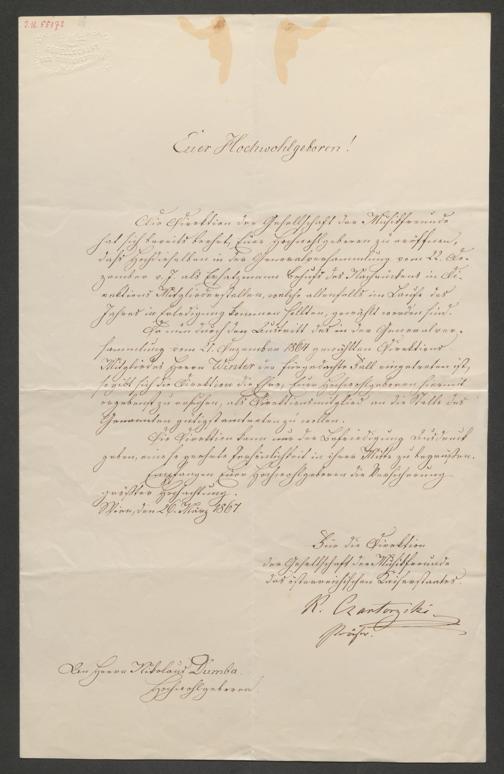 J.N. 55173
Euer Hochwohlgeboren!
Die Direktion der Gesellschaft der Musikfreunde
hat sich bereits beehrt, Euer Hochwohlgeboren zu eröffnen,
daß Hochdieselben in der Generalversammlung vom 22. De-
zember v. J. als Ersatzmann behufs des Nachrückens in Di-
rektions-Mitgliederstellen, welche allenfalls im Laufe des
Jahres in Erledigung kommen sollten, gewählt worden sind.
Da nun durch den Austritt des in der Generalver-
sammlung vom 21. Dezember 1864 gewählten Direktions-
Mitgliedes Herrn Winter der fürgedachte Fall eingetreten ist,
so gibt sich die Direktion die Ehre, Euer Hochwohlgeboren hiermit
ergebenst zu ersuchen, als Direktionsmitglied an die Stelle des
Genannten gütigst eintreten zu wollen.
Die Direktion kann nur der Befriedigung Ausdruck
geben, eine so geehrte Persönlichkeit in ihrer Mitte zu begrüßen.
Empfangen Euer Hochwohlgeboren die Versicherung
größter Hochachtung.
Wien, den 26. März 1867
Für die Direktion
der Gesellschaft der Musikfreunde
des österreichischen Kaiserstaates
K. Czartoryski
Präses.
Den Herrn Nikolaus Dumba
Hochwohlgeboren